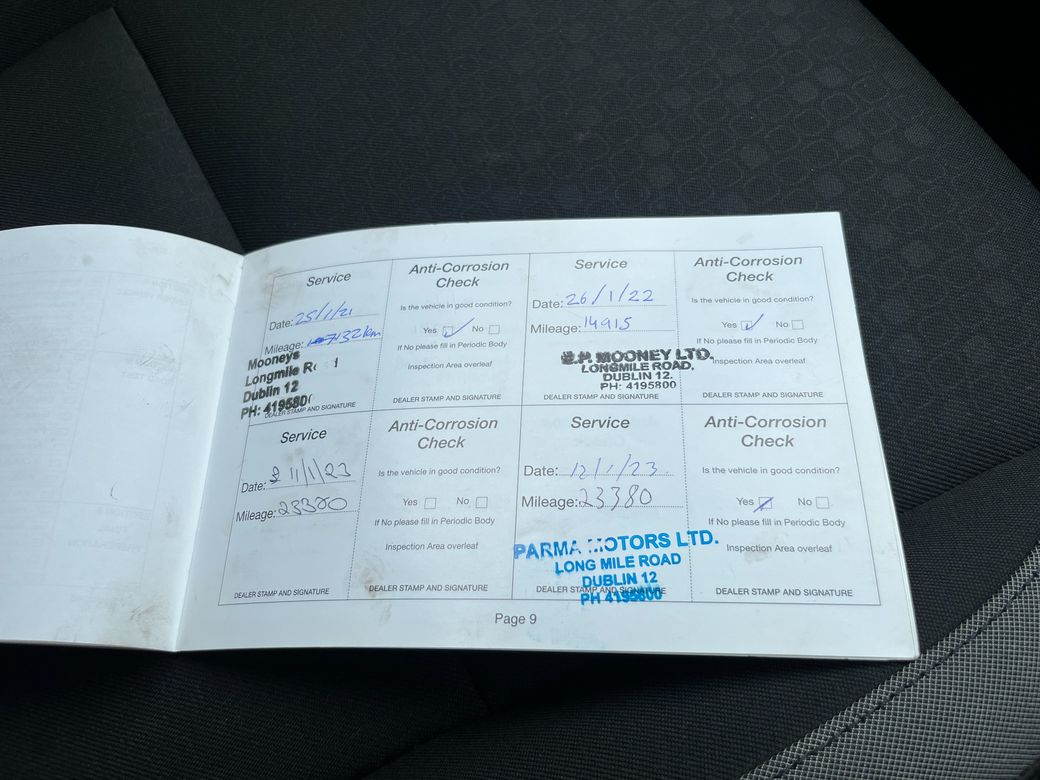 Service
Date: 25/1/21
Mileage: 7132km
Mooneys
Longmile
Dublin 12
PH: 419580
DEALER STAMP AND SIGNATURE
Anti-Corrosion
Check
Is the vehicle in good condition?
Yes No
If No please fill in Periodic Body
Inspection Area overleaf
DEALER STAMP AND SIGNATURE
Service
Date: 26/1/22
Mileage: 14915
MOONEY LTD.
LONGMILE ROAD,
DUBLIN 12.
PH: 4195800
DEALER STAMP AND SIGNATURE
Anti-Corrosion
Check
Is the vehicle in good condition?
Yes No
If No please fill in Periodic Body
Inspection Area overleaf
DEALER STAMP AND SIGNATURE
Service
Date: 11/1/23
Mileage: 23380
DEALER STAMP AND SIGNATURE
Anti-Corrosion
Check
Is the vehicle in good condition?
Yes No
If No please fill in Periodic Body
Inspection Area overleaf
DEALER STAMP AND SIGNATURE
Service
Date: 12/1/23
Mileage: 23380
PARMA MOTORS LTD.
LONG MILE ROAD
DUBLIN 12
PH 4195800
DEALER STAMP AND SIGNATURE
Anti-Corrosion
Check
Is the vehicle in good condition?
Yes No
If No please fill in Periodic Body
Inspection Area overleaf
DEALER STAMP AND SIGNATURE
Page 9